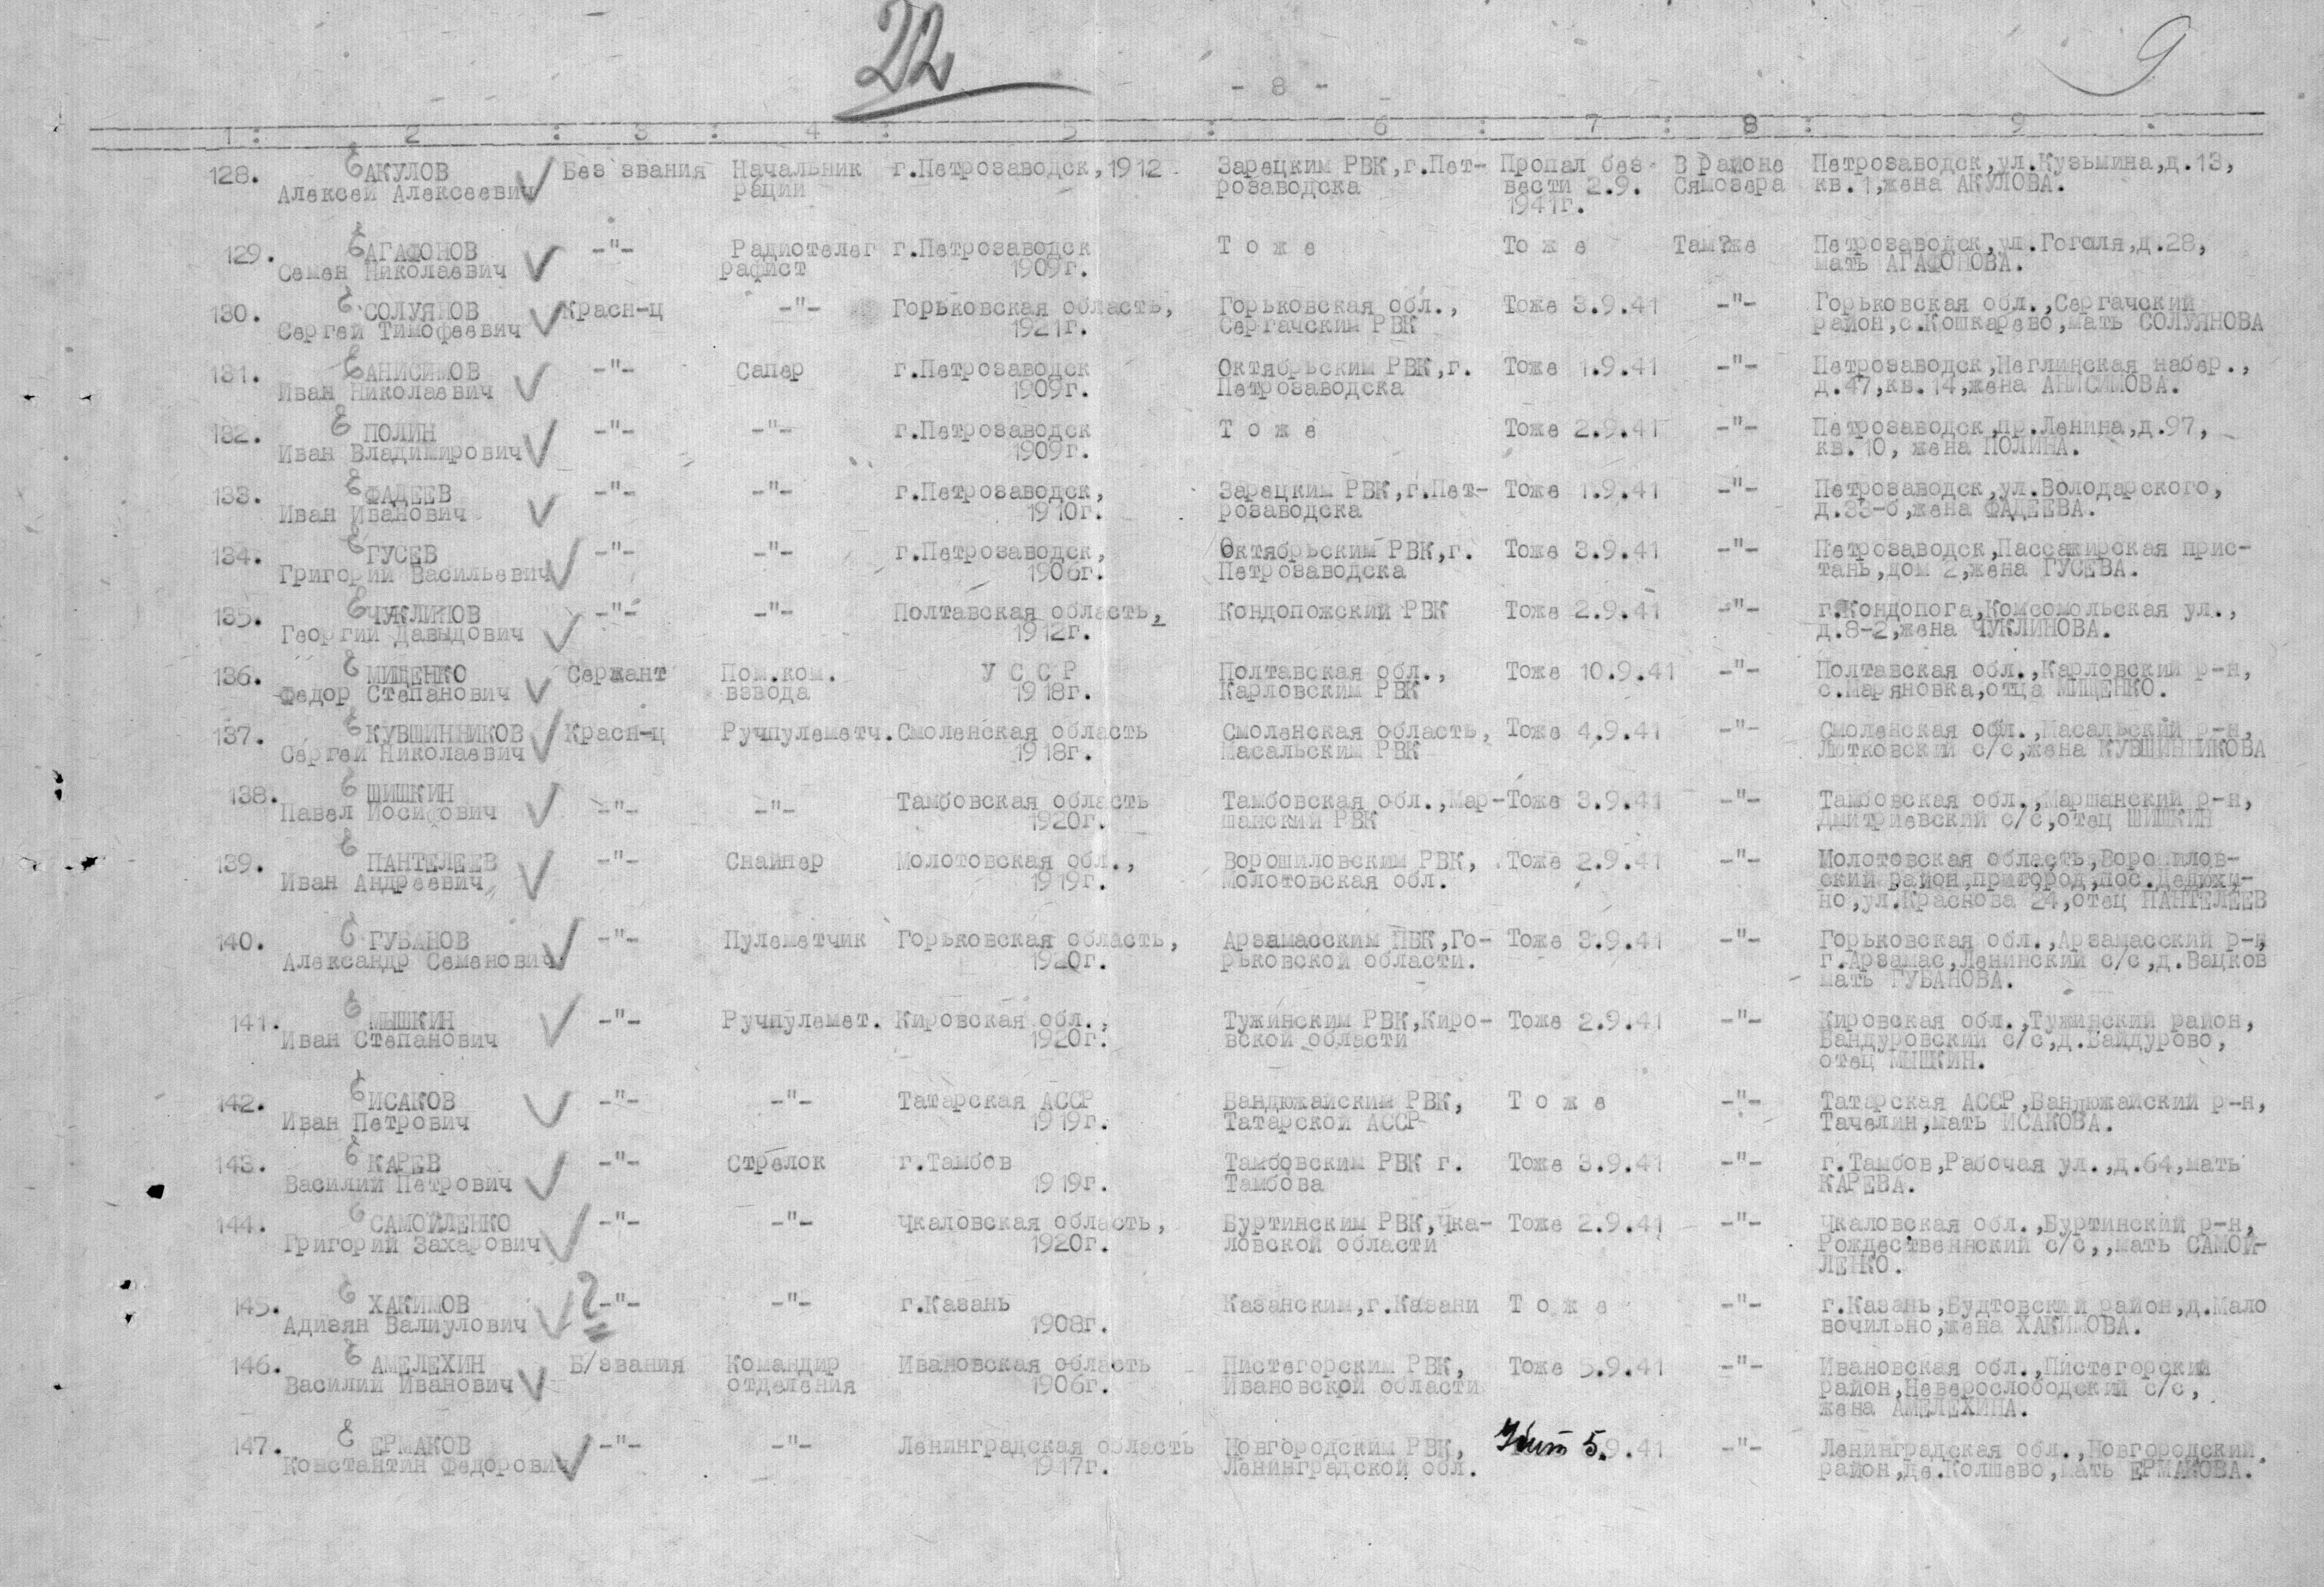 22
- 8 -
9
1 : 2 : 3 : 4 : 5 : 6 : 7 : 8 : 9
128. АКУЛОВ Без звания Начальник г.Петрозаводск,1912 Зарецким РВК,г.Пет- Пропал без В районе Петрозаводск,ул.Кузьмина,д.13,
Алексей Алексеевич рации розаводска вести 2.9. Сямозера кв.1,жена АКУЛОВА.
1941г.
129. АГАФОНОВ -"- Радиотелег г.Петрозаводск Т о ж е То ж е Там же Петрозаводск,ул.Гоголя,д.28,
Семен Николаевич рафист 1909г. мать АГАФОНОВА.
130. СОЛУЯНОВ Красн-ц -"- Горьковская область, Горьковская обл., Тоже 3.9.41 -"- Горьковская обл.,Сергачский
Сергей Тимофеевич 1921г. Сергачским РВК район,с.Кошкарево,мать СОЛУЯНОВА
131. АНИСИМОВ -"- Сапер г.Петрозаводск Октябрьским РВК,г. Тоже 1.9.41 -"- Петрозаводск,Неглинская набер.,
Иван Николаевич 1909г. Петрозаводска д.47,кв.14,жена АНИСИМОВА.
132. ПОЛИН -"- -"- г.Петрозаводск Т о ж е Тоже 2.9.41 -"- Петрозаводск,пр.Ленина,д.97,
Иван Владимирович 1909г. кв.10, жена ПОЛИНА.
133. ФАДЕЕВ -"- -"- г.Петрозаводск, Зарецким РВК,г.Пет- Тоже 1.9.41 -"- Петрозаводск,ул.Володарского,
Иван Иванович 1910г. розаводска д.33-б,жена ФАДЕЕВА.
134. ГУСЕВ -"- -"- г.Петрозаводск, Октябрьским РВК,г. Тоже 3.9.41 -"- Петрозаводск,Пассажирская прис-
Григорий Васильевич 1906г. Петрозаводска тань,дом 2,жена ГУСЕВА.
135. ЧУКЛИНОВ -"- -"- Полтавская область, Кондопожский РВК Тоже 2.9.41 -"- г.Кондопога,Комсомольская ул.,
Георгий Давыдович 1912г. д.8-2,жена ЧУКЛИНОВА.
136. МИЩЕНКО Сержант Пом.ком. У С С Р Полтавская обл., Тоже 10.9.41 -"- Полтавская обл.,Карловский р-н,
Федор Степанович взвода 1918г. Карловским РВК с.Маряновка,отца МИЩЕНКО.
137. КУВШИННИКОВ Красн-ц Ручпулеметч. Смоленская область Смоленская область, Тоже 4.9.41 -"- Смоленская обл.,Масальский р-н,
Сергей Николаевич 1918г. Масальским РВК Лютковский с/с,жена КУВШИННИКОВА
138. ШИШКИН -"- -"- Тамбовская область Тамбовская обл.,Мар- Тоже 3.9.41 -"- Тамбовская обл.,Маршанский р-н,
Павел Иосифович 1920г. шанский РВК Дмитриевский с/с,отец ШИШКИН
139. ПАНТЕЛЕЕВ -"- Снайпер Молотовская обл., Ворошиловским РВК, Тоже 2.9.41 -"- Молотовская область,Ворошилов-
Иван Андреевич 1919г. Молотовская обл. ский район,пригород,пос.Дедюхи-
но,ул.Краснова 24,отец ПАНТЕЛЕЕВ
140. ГУБАНОВ -"- Пулеметчик Горьковская область, Арзамасским РВК,Го- Тоже 3.9.41 -"- Горьковская обл.,Арзамасский р-н
Александр Семенович 1920г. рьковской области. г.Арзамас,Ленинский с/с,д.Вацков
мать ГУБАНОВА.
141. МЫШКИН -"- Ручпулемет. Кировская обл., Тужинским РВК,Киро- Тоже 2.9.41 -"- Кировская обл.,Тужинский район,
Иван Степанович 1920г. вской области с/с,д. отец МЫШКИН.
142. ИСАКОВ -"- -"- Татарская АССР Бандюжайским РВК, Т о ж е -"- Татарская АССР,Бандюжайский р-н,
Иван Петрович 1919г. Татарской АССР Тачелин,мать ИСАКОВА.
143. КАРЕВ -"- Стрелок г.Тамбов Тамбовским РВК г. Тоже 3.9.41 -"- г.Тамбов,Рабочая ул.,д.64,мать
Василий Петрович 1919г. Тамбова КАРЕВА.
144. САМОЙЛЕНКО -"- -"- Чкаловская область, Буртинским РВК,Чка- Тоже 2.9.41 -"- Чкаловская обл.,Буртинский р-н,
Григорий Захарович 1920г. ловской области Рождественнский с/с,,мать САМОЙ-
ЛЕНКО.
145. ХАКИМОВ ? -"- -"- г.Казань Казанским,г.Казани Т о ж е -"- г.Казань,Будтовский район,д.Мало
Адизян Валиулович 1908г. вочильно,жена ХАКИМОВА.
146. АМЕЛЕХИН Б/звания Командир Ивановская область Пистегорским РВК, Тоже 5.9.41 -"- Ивановская обл.,Пистегорский
Василий Иванович отделения 1906г. Ивановской области район,Неверослободский с/с,
жена АМЕЛЕХИНА.
147. ЕРМАКОВ -"- -"- Ленинградская область Новгородским РВК, Убит 5.9.41 -"- Ленинградская обл.,Новгородский
Константин Федорович 1917г. Ленинградской обл. район,де.Колшево,мать ЕРМАКОВА.